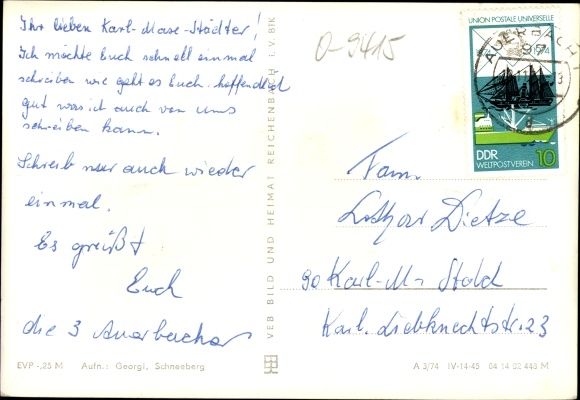 Ihr lieben Karl-Marx-Städter!
Ich möchte Euch schnell einmal
schreiben wie geht es Euch. hoffendlich
gut was ich auch von uns
schreiben kann.
Schreib nur auch wieder
einmal.
Es grüßt
Euch
die 3 Auerbacher
EVP -,25 M Aufn.: Georgi, Schneeberg
VEB BILD UND HEIMAT REICHENBACH I. V. BIK
O-9415
UNION POSTALE UNIVERSELLE
1974
DDR
WELTPOSTVEREIN 10
AUERBACH
97
Fam.
Lothar Dietze
90 Karl-M- Stadt
Karl. Liebknechtstr. 23
A 3/74 IV-14-45 04 14 02 443 M